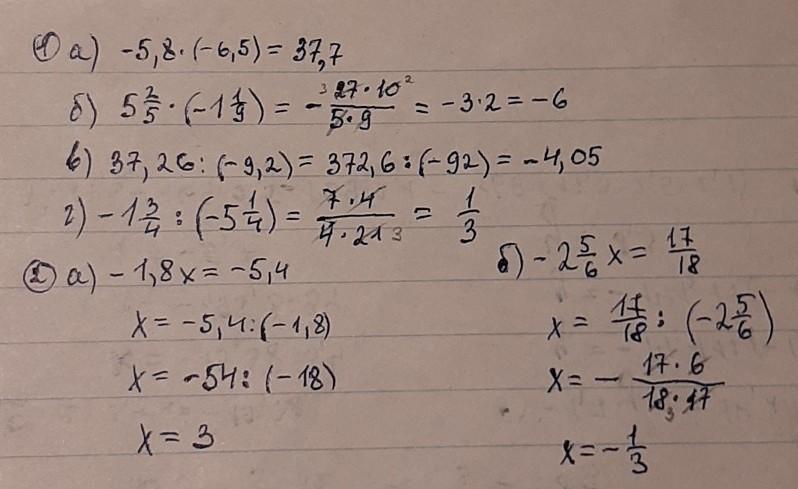 ① а) -5,8·(-6,5) = 37,7
б) 5 2/5 · (-1 1/9) = - ³27·10²/5·9 = -3·2 = -6
в) 37,26:(-9,2) = 372,6:(-92) = -4,05
г) -1 3/4 : (-5 1/4) = 7·4/4·21 3 = 1/3
② а) -1,8x = -5,4
x = -5,4:(-1,8)
x = -54:(-18)
x = 3
б) -2 5/6 x = 17/18
x = 17/18 : (-2 5/6)
x = - 17·6/18 3·17
x = - 1/3